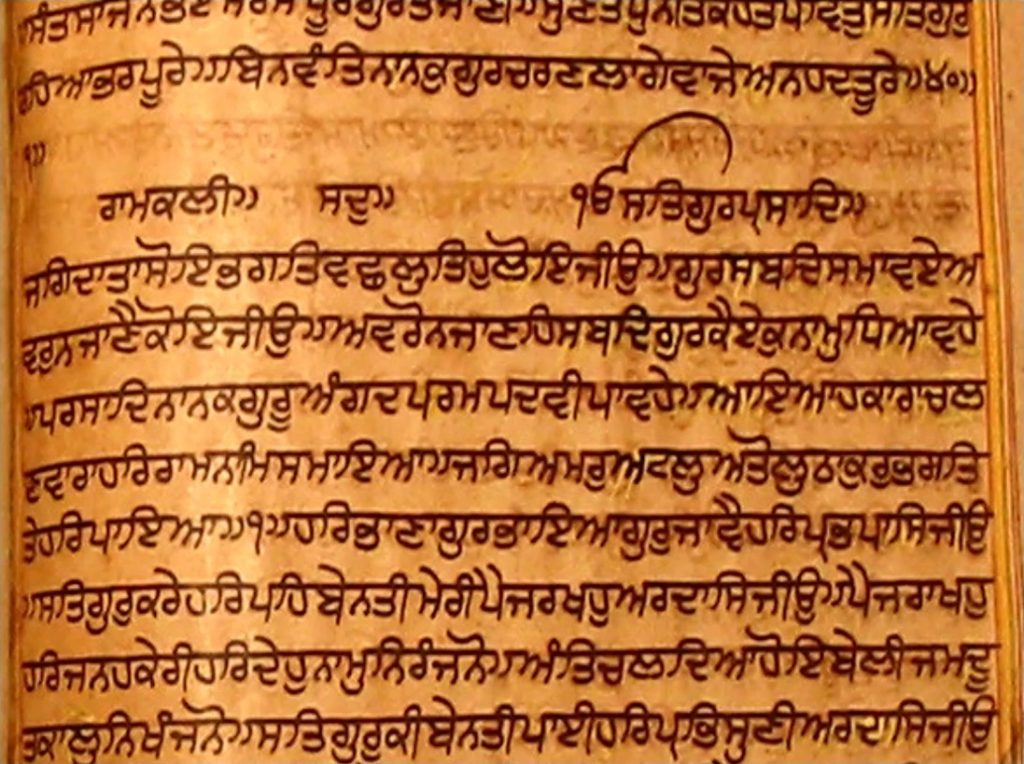 ਸੰਤਸਾਜਨਭਏਸਰਸੇਪੂਰੇਗੁਰਤੇਜਾਣੀ॥ਸੁਣਤੇਪੁਨੀਤਕਹਤੇਪਵਿਤੁਸਤਿਗੁਰੁ
ਰਹਿਆਭਰਪੂਰੇ॥ਬਿਨਵੰਤਿਨਾਨਕੁਗੁਰਚਰਣਲਾਗੇਵਾਜੇਅਨਹਦਤੂਰੇ॥੪੦॥
੧॥
ਰਾਮਕਲੀ॥ ਸਦੁ॥ ੴਸਤਿਗੁਰਪ੍ਰਸਾਦਿ॥
ਜਗਿਦਾਤਾਸੋਇਭਗਤਿਵਛਲੁਤਿਹੁਲੋਇਜੀਉ॥ਗੁਰਸਬਦਿਸਮਾਵਏਅ
ਵਰੁਨਜਾਣੈਕੋਇਜੀਉ॥ਅਵਰੋਨਜਾਣਹਿਸਬਦਿਗੁਰਕੈਏਕੁਨਾਮੁਧਿਆਵਹੇ
॥ਪਰਸਾਦਿਨਾਨਕਗੁਰੂਅੰਗਦਪਰਮਪਦਵੀਪਾਵਹੇ॥ਆਇਆਹਕਾਰਾਚਲ
ਣਵਾਰਾਹਰਿਰਾਮਨਾਮਿਸਮਾਇਆ॥ਜਗਿਅਮਰੁਅਟਲੁਅਤੋਲੁਠਾਕੁਰੁਭਗਤਿ
ਤੇਹਰਿਪਾਇਆ॥੧॥ਹਰਿਭਾਣਾਗੁਰਭਾਇਆਗੁਰੁਜਾਵੈਹਰਿਪ੍ਰਭਪਾਸਿਜੀਉ
॥ਸਤਿਗੁਰੁਕਰੇਹਰਿਪਹਿਬੇਨਤੀਮੇਰੀਪੈਜਰਖਹੁਅਰਦਾਸਿਜੀਉ॥ਪੈਜਰਾਖਹੁ
ਹਰਿਜਨਹਕੇਰੀਹਰਿਦੇਹੁਨਾਮੁਨਿਰੰਜਨੋ॥ਅੰਤਿਚਲਦਿਆਹੋਇਬੇਲੀਜਮਦੂ
ਤਕਾਲੁਨਿਖੰਜਨੋ॥ਸਤਿਗੁਰੁਕੀਬੇਨਤੀਪਾਈਹਰਿਪ੍ਰਭਿਸੁਣੀਅਰਦਾਸਿਜੀਉ